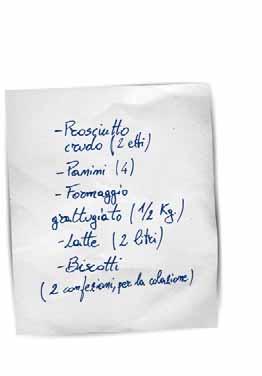 - Prosciutto
crudo (2 etti)
- Panini (4)
- Formaggio
grattugiato (1/2 Kg.)
- Latte (2 litri)
- Biscotti
(2 confezioni, per la colazione)